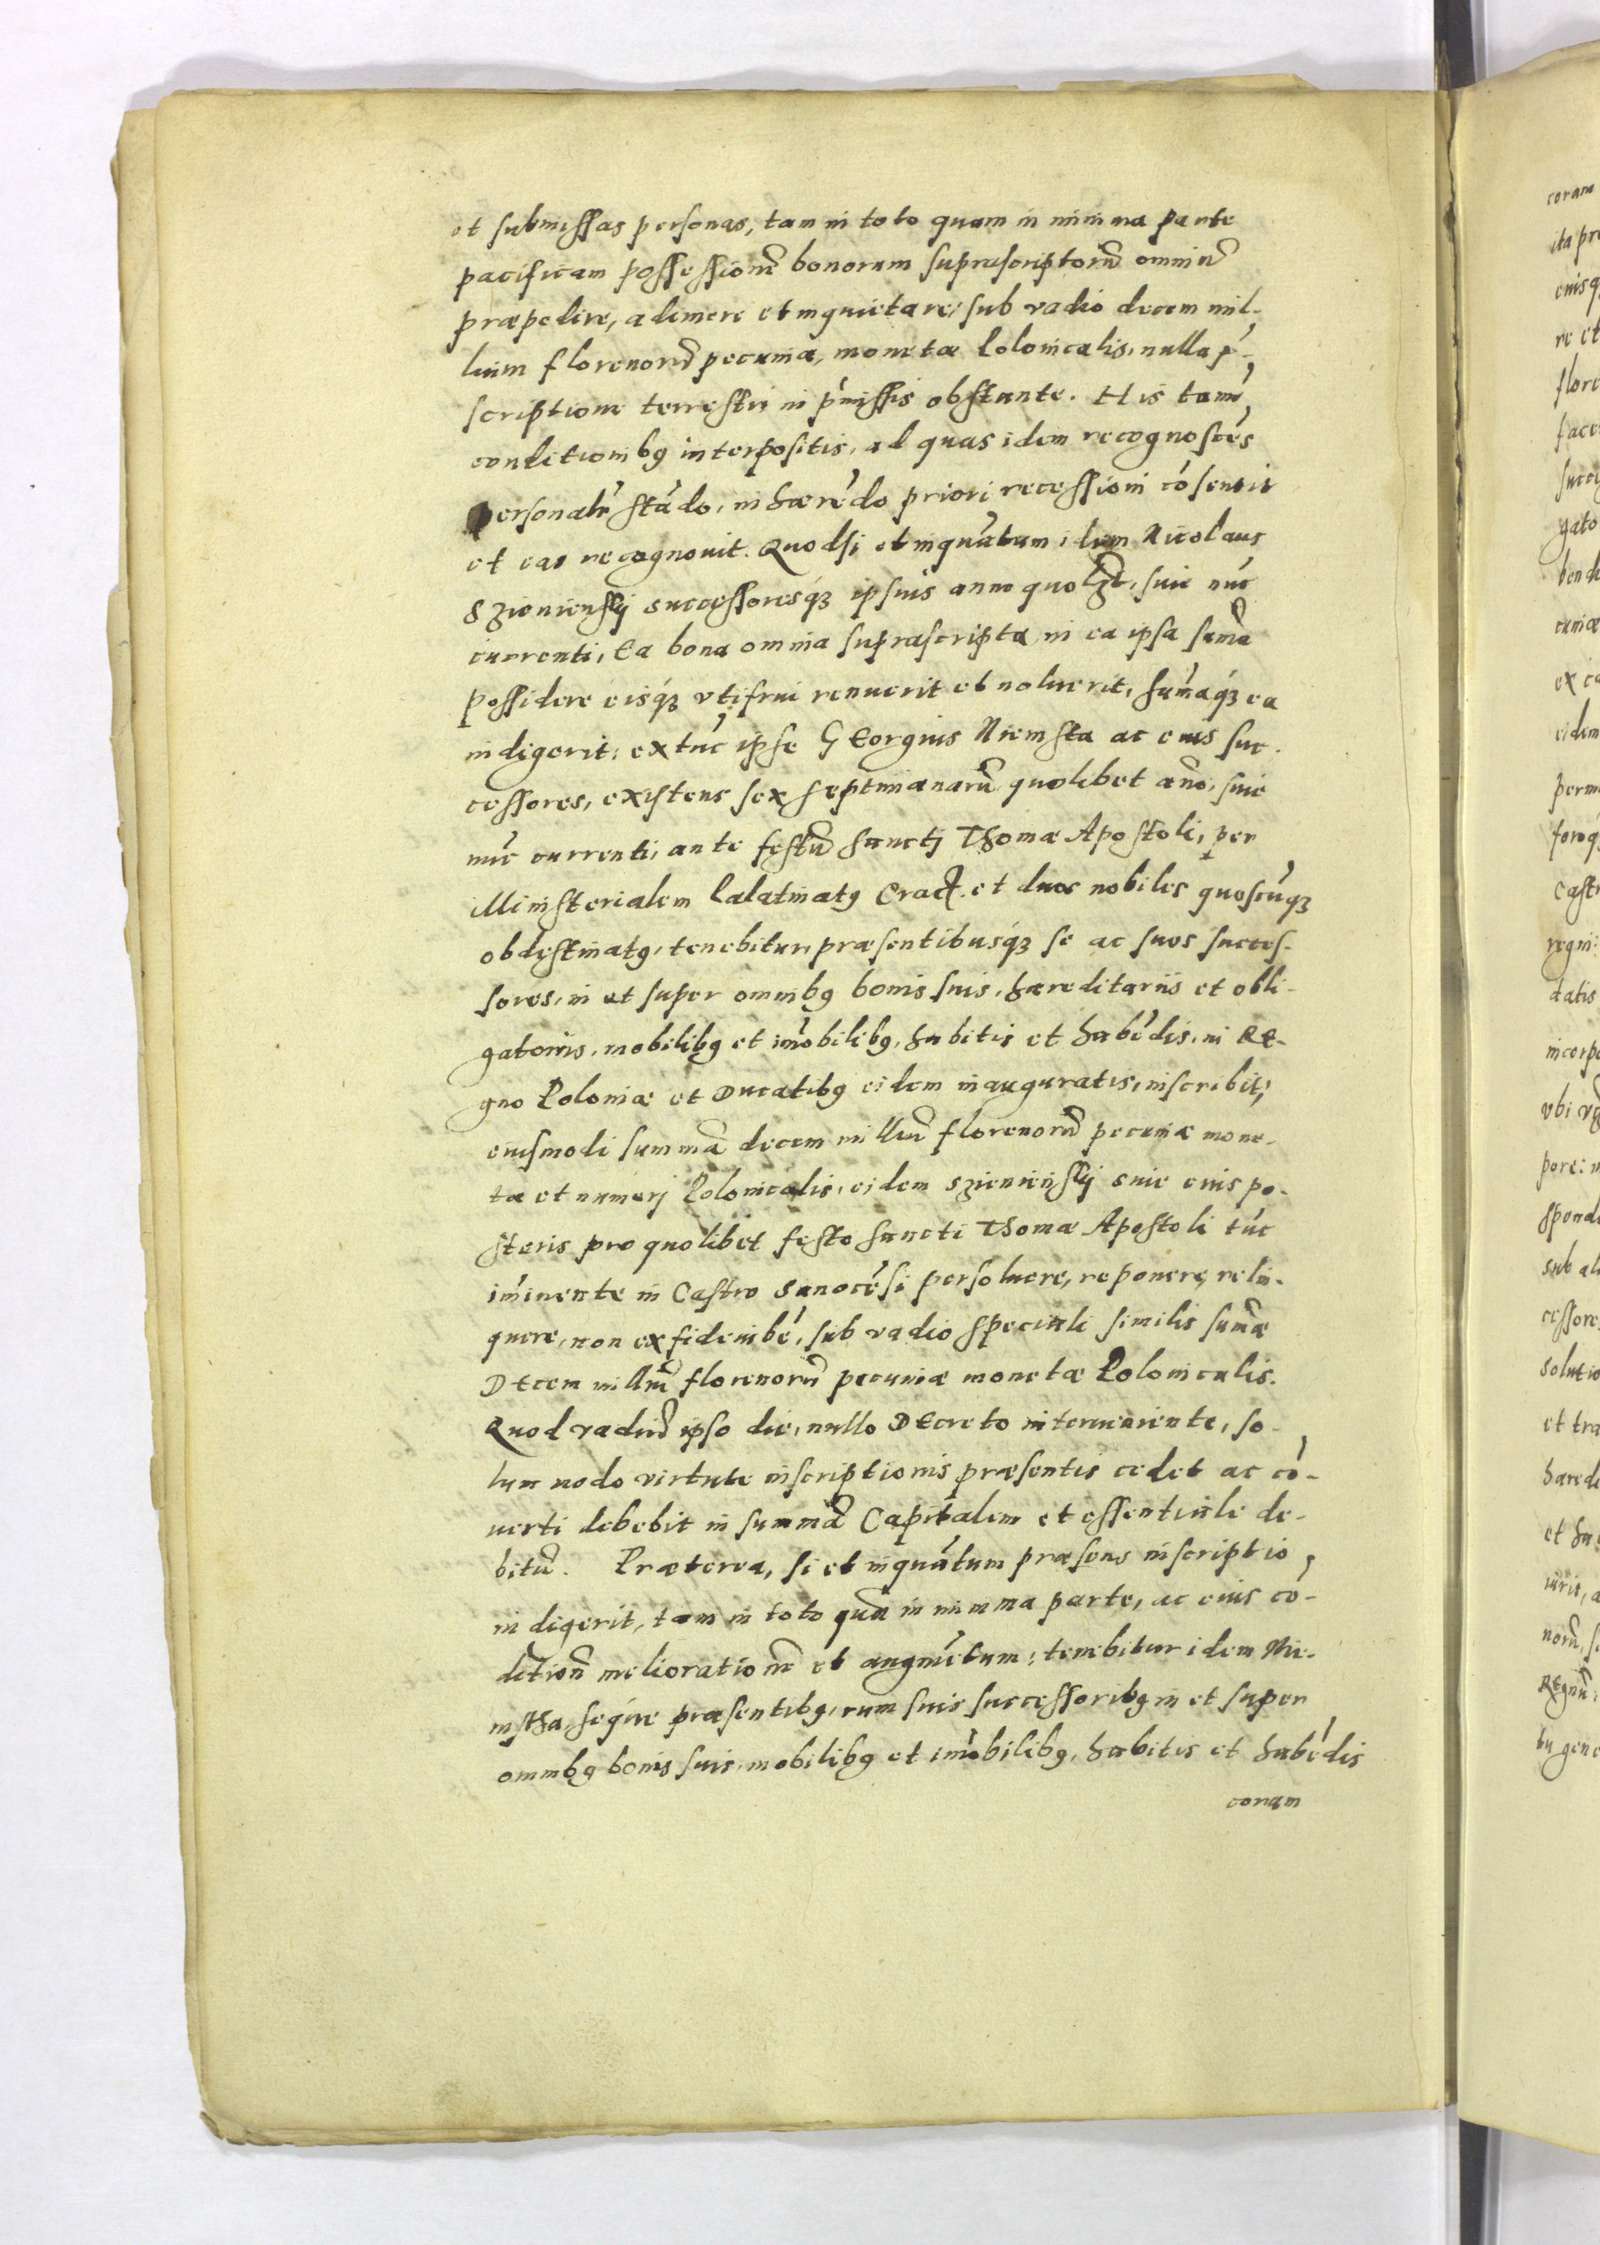 et submissas personas, tam in toto quam in minima parte
pacificam possessionē bonorum suprascriptorū omniū
præpedire, adimere et inquietare, sub vadio decem mil-
lium florenorū pecuniæ, monetæ Polonicalis, nulla p̄-
scriptione terrestri in p̄missis obstante. His tamē
conditionibꝰ interpositis, ad quas idem recognoscēs
personalr̄ stādo, inhærēdo priori recessioni cōsensit
et eas recognovit. Quodsi et inquātum idem Nicolaus
Szienienskj successoresq́ꝫ ipsius anno quolꝫt, sive nūc
currenti, Ea bona omnia suprascripta in ea ipsa sum̄a
possidere eisq́ꝫ vtifrui renuerit et noluerit, sum̄aq́ꝫ ea
indigerit: extūc ipse GEorgius Niemsta ac eius suc-
cessores, existens sex septimanarū quolibet an̄o, sive
nūc currenti, ante festū Sanctj Thomæ Apostoli, per
Ministerialem Palatinatꝰ Crac. et duos nobiles quoscūqꝫ
obdestinatꝰ, tenebitur, præsentibusq́ꝫ se ac suos succes-
sores, in et super omnibꝰ bonis suis, hæreditariis et obli-
gatoriis, mobilibꝰ et im̄obilibꝰ, habitis et habēdis, in RE-
gno Poloniæ et Ducatibꝰ eidem inauguratis, inscribit,
eiusmodi summā decem milliū florenorū pecuniæ mone-
tæ et numerj Polonicalis, eidem Szienienskj sive eius po-
steris pro quolibet festo Sancti Thomæ Apostoli tūc
im̄inente in Castro Sanocēsi persoluere, reponere, relin-
quere, non exfidendbē, sub vadio speciali similis sum̄æ
DEcem milliū florenorū pecuniæ monetæ Polonicalis.
Quod vadiū ipso die, nullo DEcreto interueniente, so-
lum modo virtute inscriptionis præsentis cedet ac cō-
uerti debebit in summā Capitalem et essentiale de-
bitū. Præterea, si et inquātum præsens inscriptio
indigerit, tam in toto quā in minima parte, ac eius cō-
ditionū meliorationē et augmētum: tenebitur idem Nie-
mstha, seq́ue præsentibꝰ, cum suis successoribꝰ in et super
omnibꝰ bonis suis, mobilibꝰ et im̄obilibꝰ, habitis et habēdis
coram